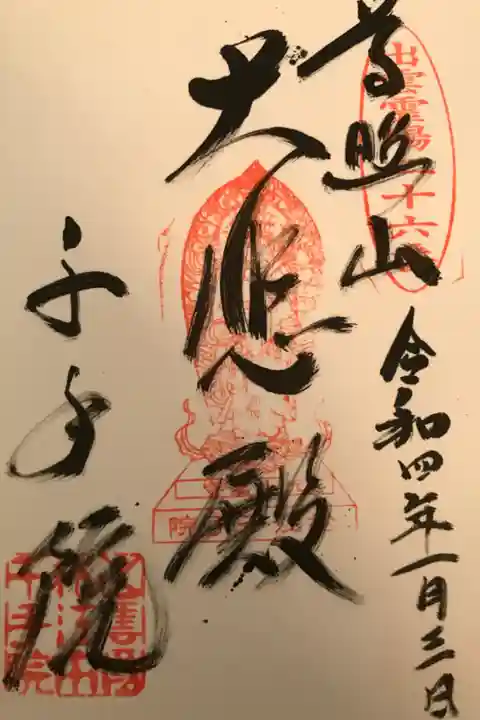 尊照山
令和四年一月三日
大悲殿
千手院
出雲霊場
十六
院
千手院